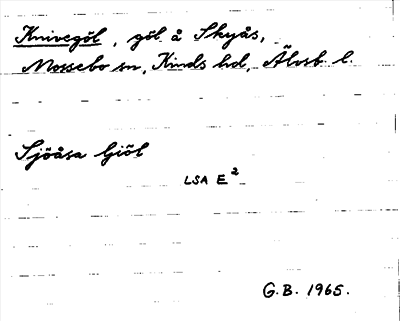 Knivegöl, göl å Skyås,
Mossebo sn, Kinds hd, Älvsb. l.
Sjöåsa Giöl
LSA E²
G.B. 1965.